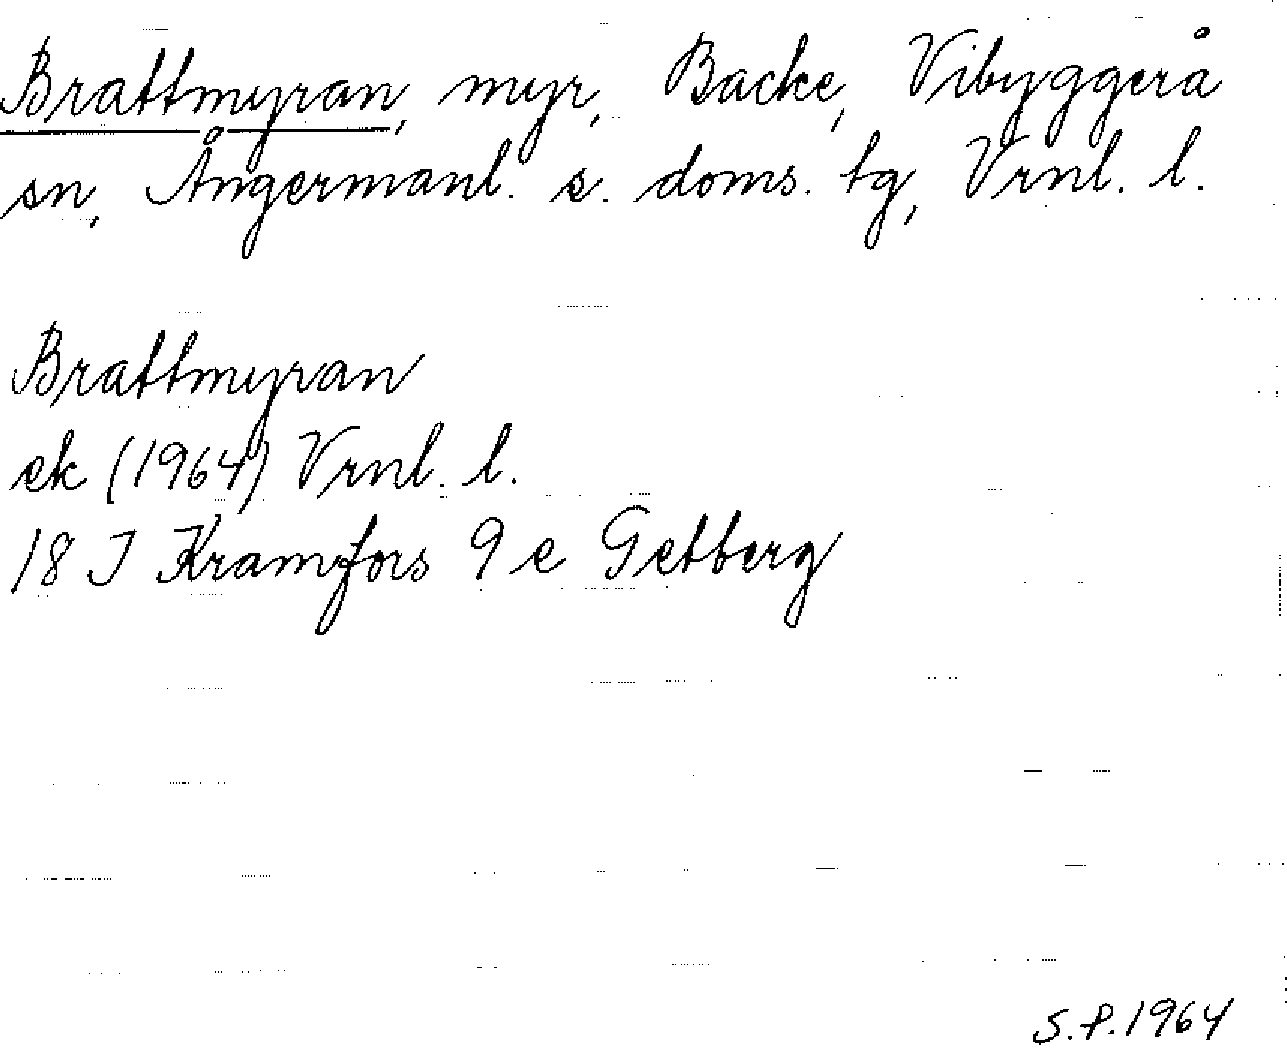 Brattmyran, myr, Backe, Vibyggerå
sn, Ångermanl. s. doms. tg, Vrnl. l.
Brattmyran
ek (1964) Vrnl. l.
18 J Kramfors 9 e Getberg
S.P. 1964